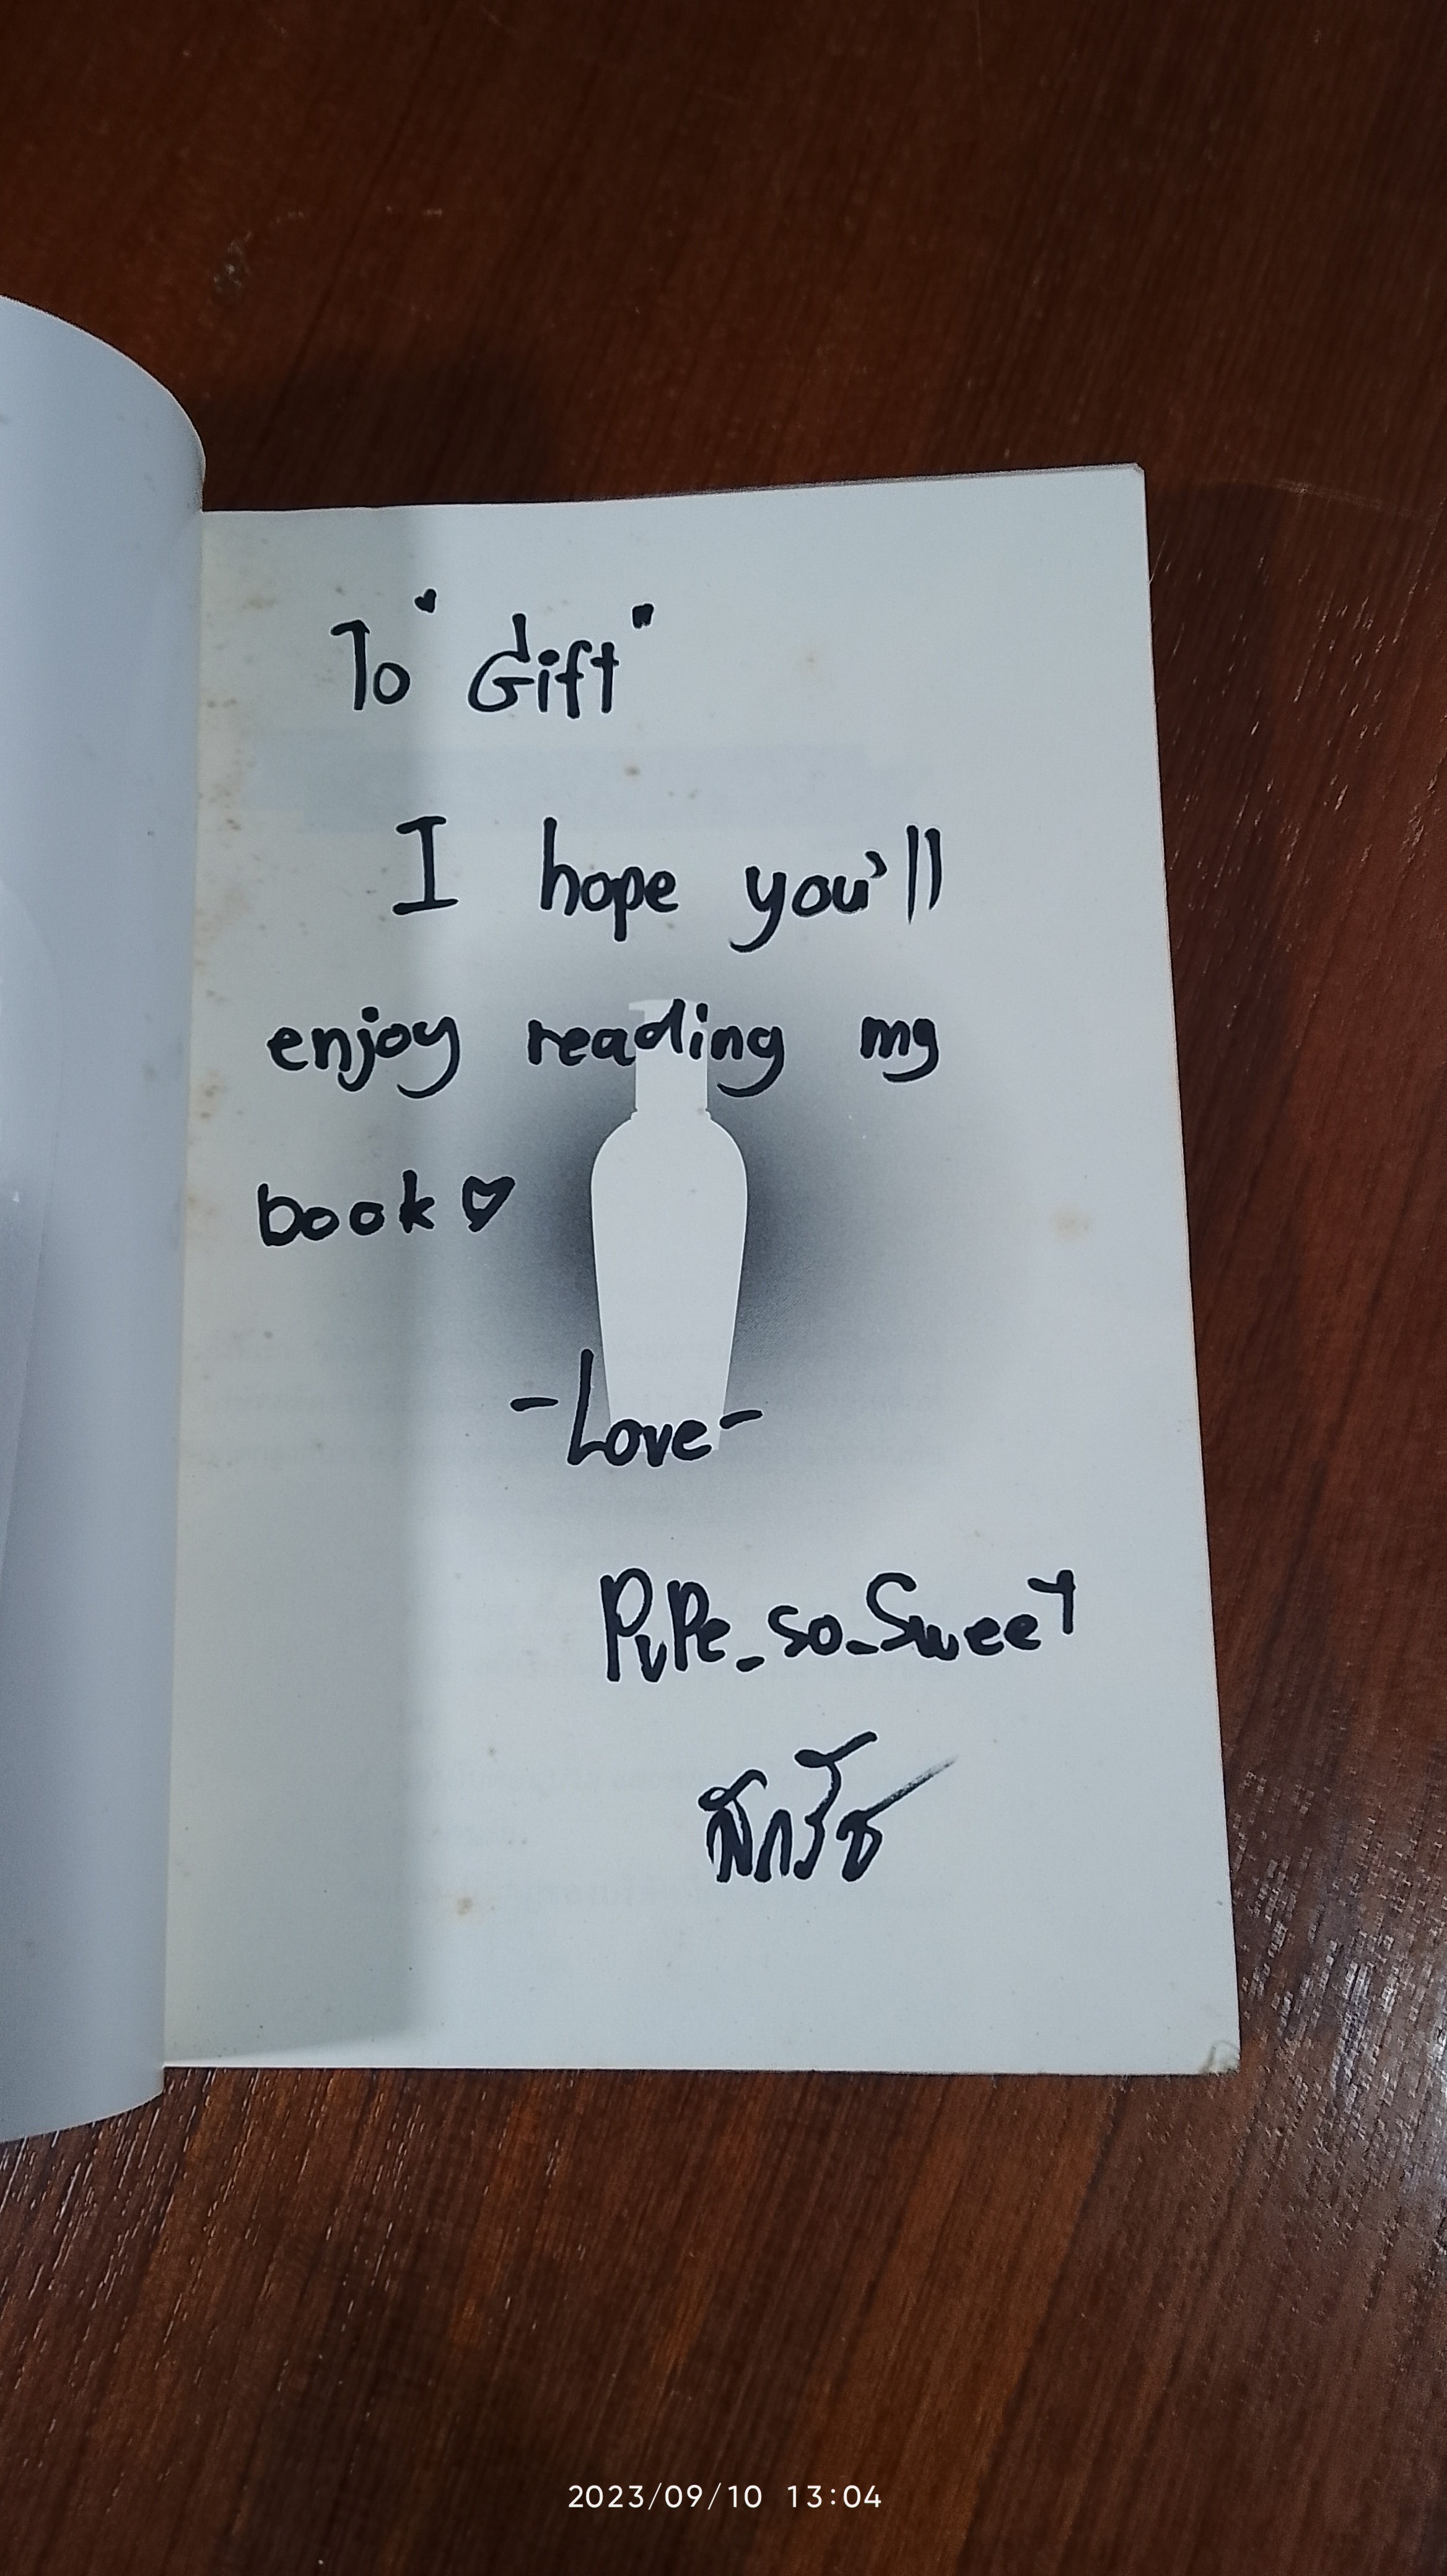 To "Gift"
I hope you'll
enjoy reading my
book ♡
-Love-
PuPe_so_Sweet
2023/09/10 13:04